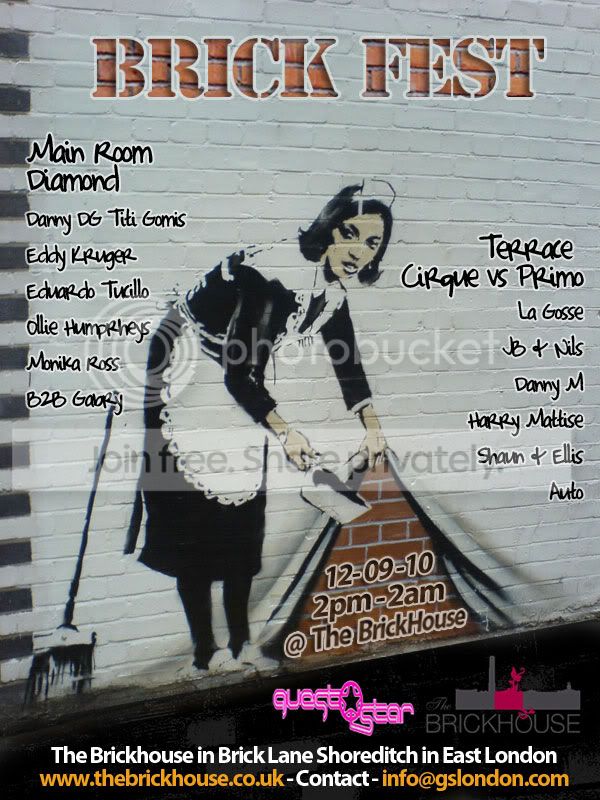 BRICK FEST
Main Room
Diamond
Danny DG Titi Gomis
Eddy Kruger
Eduardo Tucillo
Ollie Humprheys
Monika Ross
B2B Galaxy
Terrace
Cirque vs Primo
La Gosse
JB & Nils
Danny M
Harry Mattise
Shaun & Ellis
Auto
photobucket
Join free. Share privately.
12-09-10
2pm-2am
@ The BrickHouse
guest star
The
BRICKHOUSE
The Brickhouse in Brick Lane Shoreditch in East London
www.thebrickhouse.co.uk - Contact - info@gslondon.com